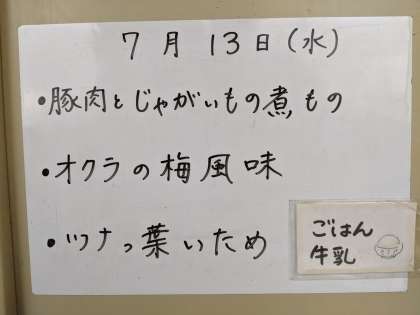 7月13日(水)
・豚肉とじゃがいもの煮もの
・オクラの梅風味
・ツナっ葉いため
ごはん
牛乳